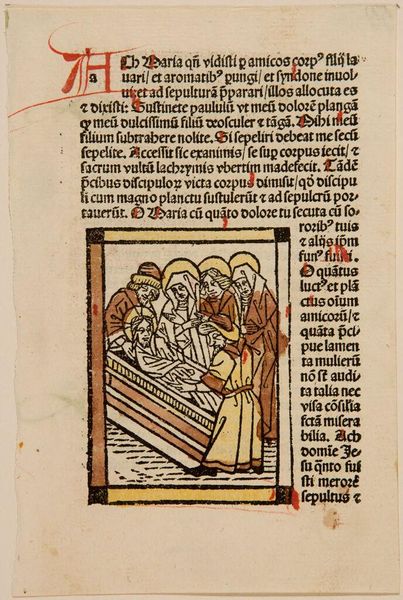 Ach Maria qñ vidisti p amicos corpꝰ filij la
uari/ et aromatibꝰ pungi/ et syndone inuol
ui et ad sepulturã pparari/illos allocuta es
⁊ dixisti: Sustinete paululũ vt meũ dolorẽ plangã
⁊ meũ dulcissimũ filiũ deosculer ⁊ tãgã. Mihi meũ
filium subtrahere nolite. Si sepeliri debeat me secũ
sepelite. Accessit sic exanimis/ ⁊ sup corpus iecit/ ⁊
sacrum vultũ lachrymis vbertim madefecit. Tãdẽ
pcibus discipulorꝝ victa corpus dimisit/ qđ discipu
li cum magno planctu sustulerũt ⁊ ad sepulcrũ por
tauerũt. O Maria cũ quãto dolore tu secuta cũ so-
roribꝰ tuis
⁊ alijs ipm
funꝰ fuisti.
O quãtus
luctꝰ et plã
ctus oĩum
amicorũ/ ⁊
quãta pci
pue lamen
ta mulierũ
nõ sẽ audi
ta talia nec
visa cõsilia
fctã misera
bilia. Ach
domĩe Je
su qñto fui
sti merorẽ
sepultus ⁊